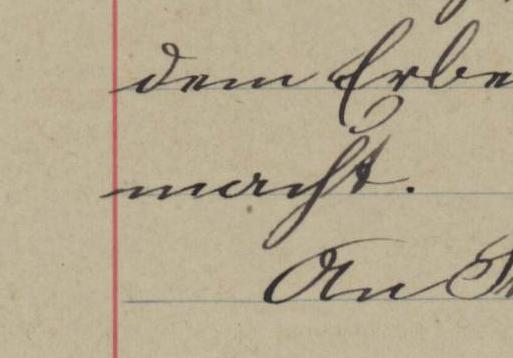 dem Erbe
macht.
An